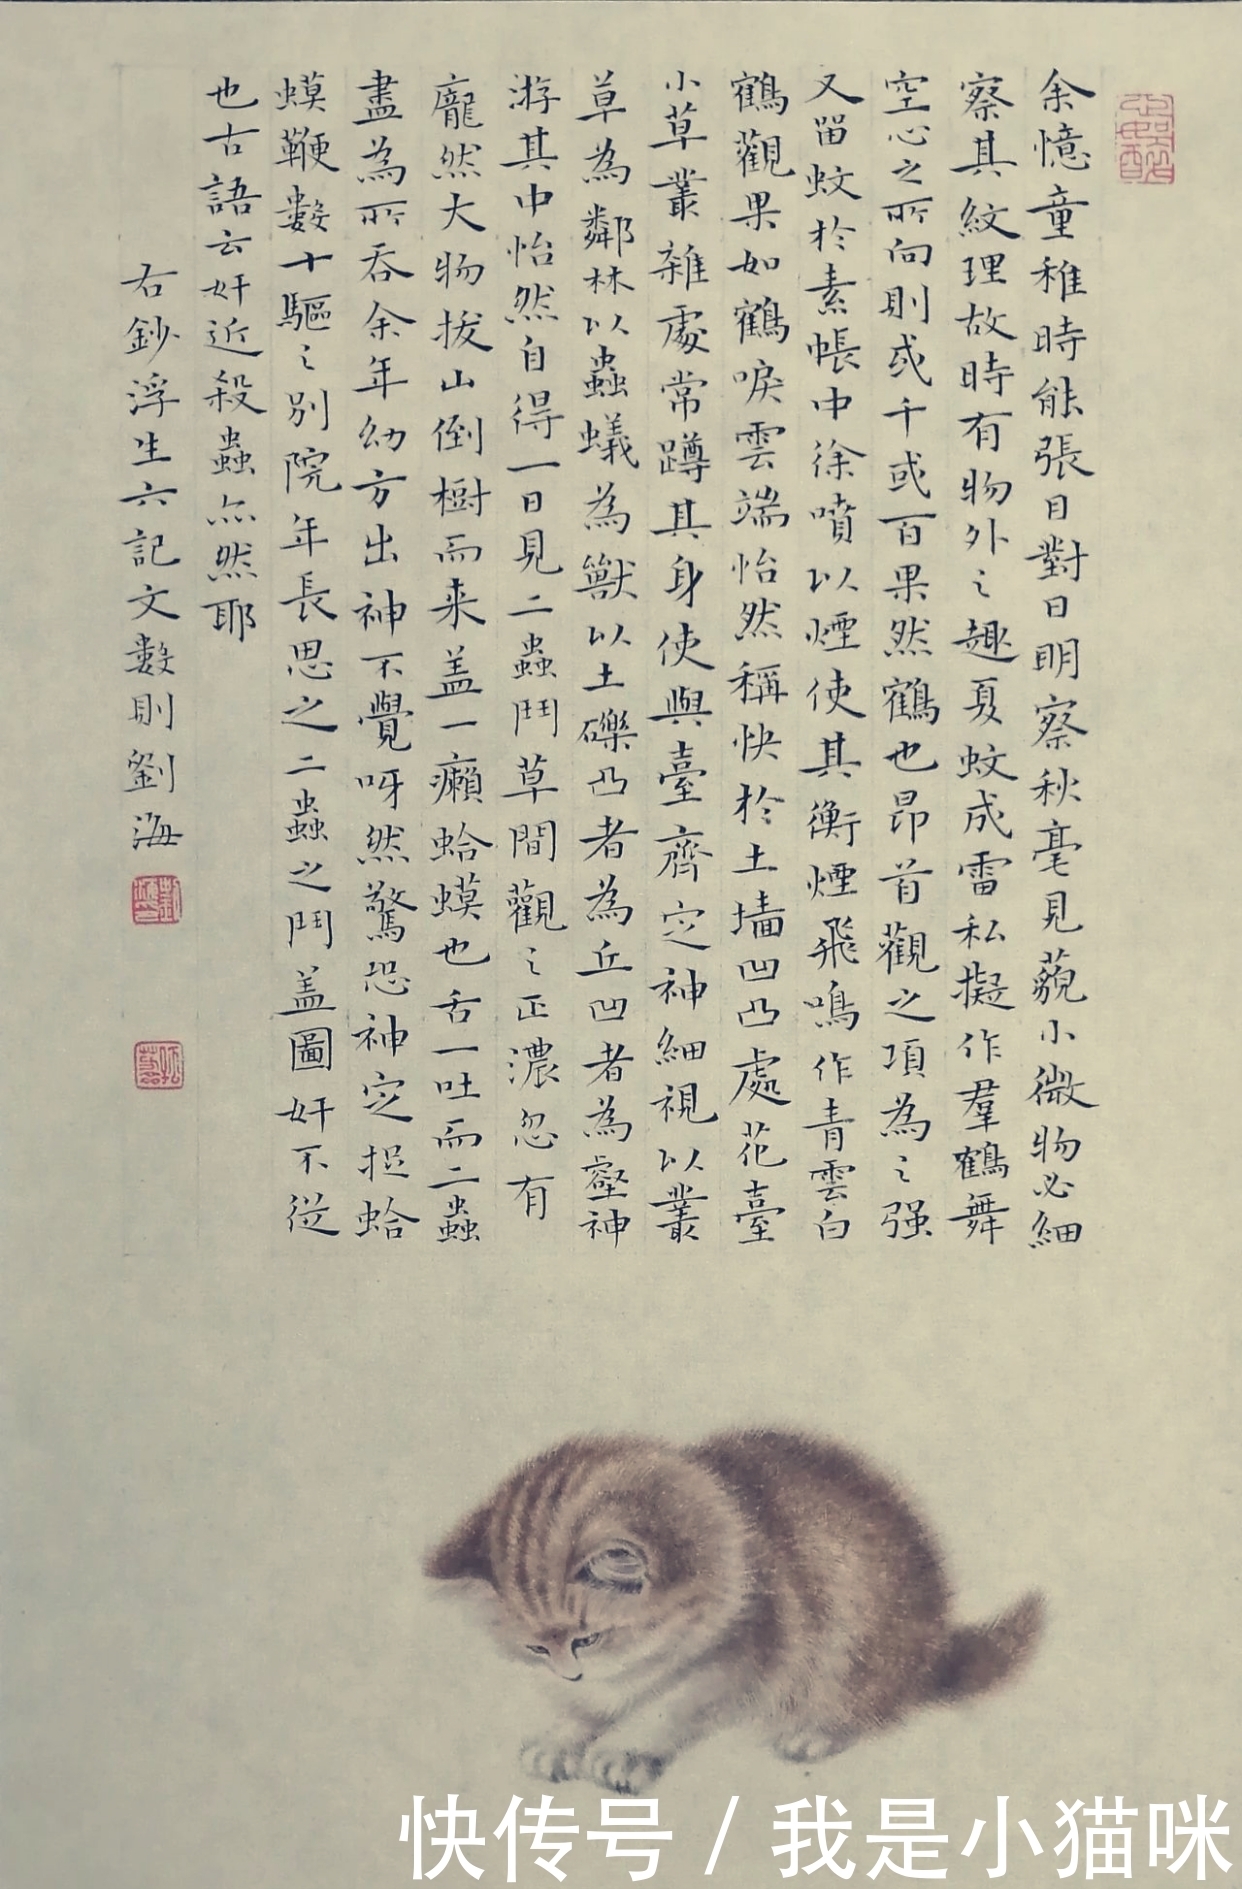 余憶童稚時能張目對日明察秋毫見藐小微物必細
察其紋理故時有物外之趣夏蚊成雷私擬作羣鶴舞
空心之所向則或千或百果然鶴也昂首觀之項為之强
又留蚊於素帳中徐噴以煙使其衝煙飛鳴作青雲白
鶴觀果如鶴唳雲端怡然稱快於土墻凹凸處花臺
小草叢雜處常蹲其身使與臺齊定神細視以叢
草為鄰林以蟲蟻為獸以土礫凸者為丘凹者為壑神
游其中怡然自得一日見二蟲鬥草間觀之正濃忽有
龐然大物拔山倒樹而来盖一癩蛤蟆也舌一吐而二蟲
盡為所吞余年幼方出神不覺呀然驚恐神定捉蛤
蟆鞭數十驅之別院年長思之二蟲之鬥盖圖奸不從
也古語云奸近殺蟲亦然耶
右鈔浮生六記文數則劉海
快传号/我是小猫咪